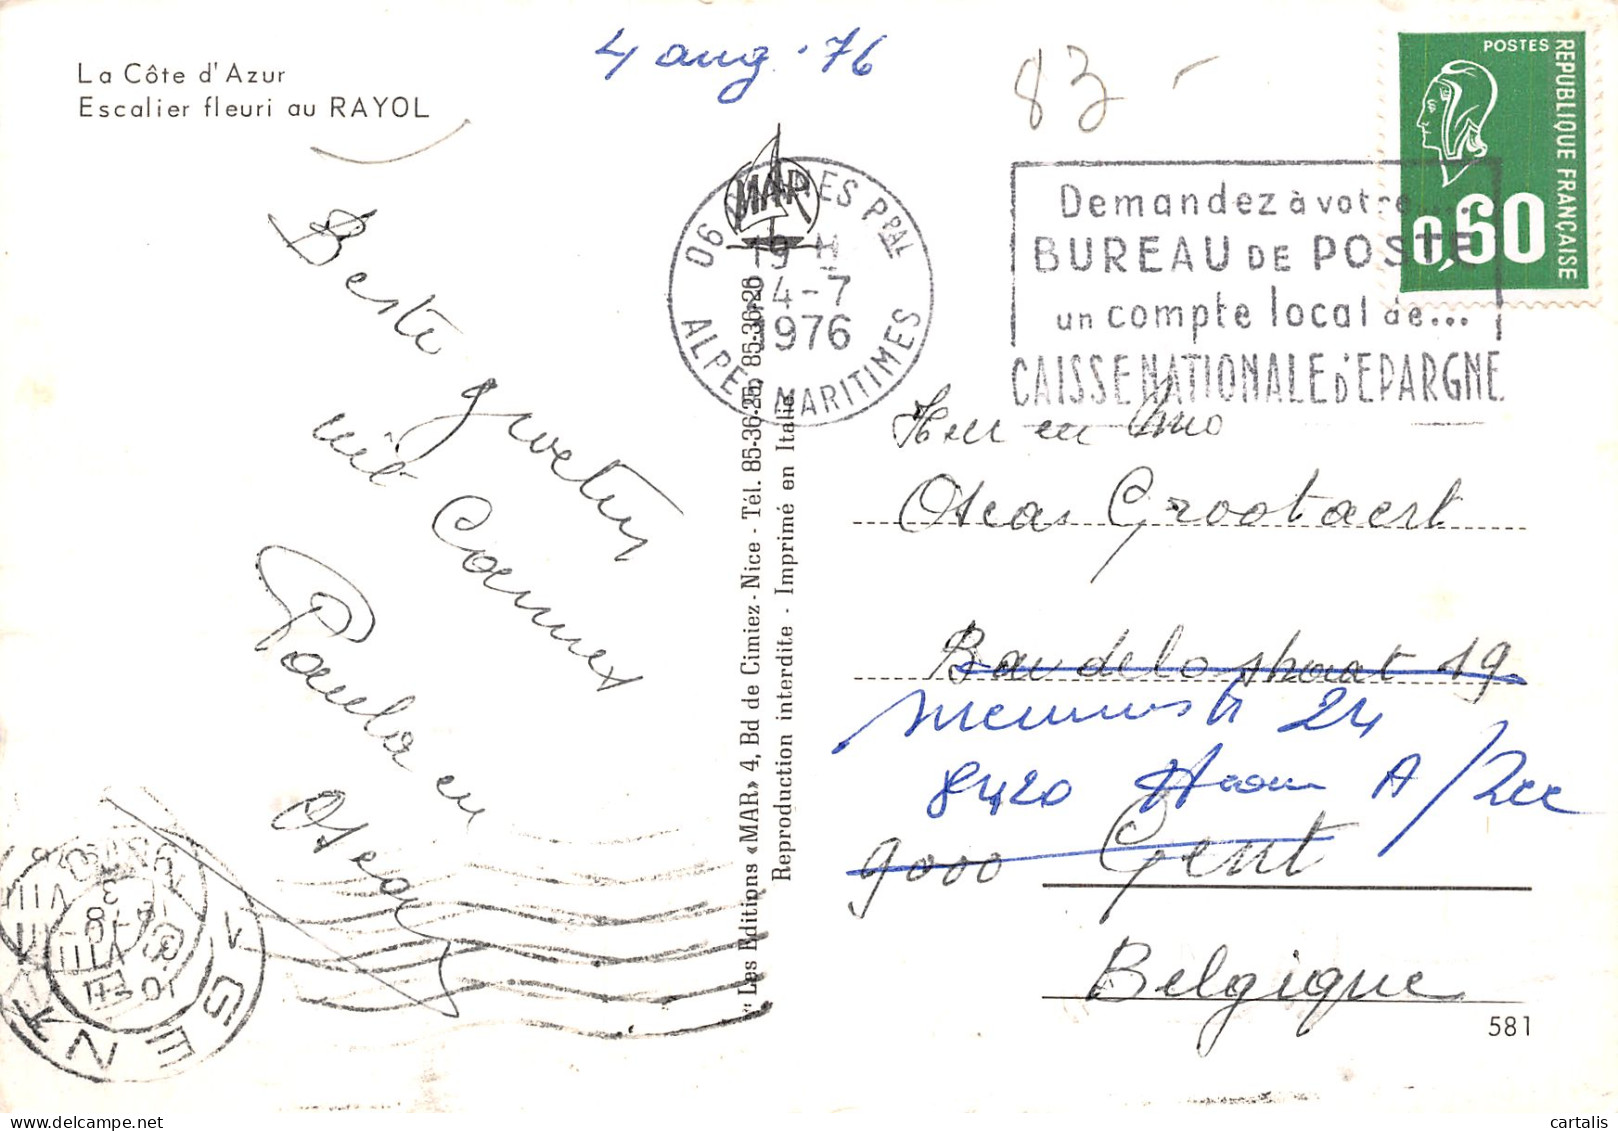 La Côte d'Azur
Escalier fleuri au RAYOL
4 aug. '76
83 -
POSTES
REPUBLIQUE FRANÇAISE
0,60
MAR
06 CANNES PPAL
19 H
24-7
1976
ALPES MARITIMES
Demandez à votre...
BUREAU DE POSTE
un compte local de...
CAISSE NATIONALE D'EPARGNE
Beste groeten
uit Cannes
Paula en
Oscar
"Les Editions «MAR» 4, Bd de Cimiez - Nice - Tél. 85-36-25, 85-36-26
Reproduction interdite - Imprimé en Italie
Oscar Grootaert
Baudelostraat 19
24
8420 Haan A/Zee
9000 Gent
Belgique
581
GENT